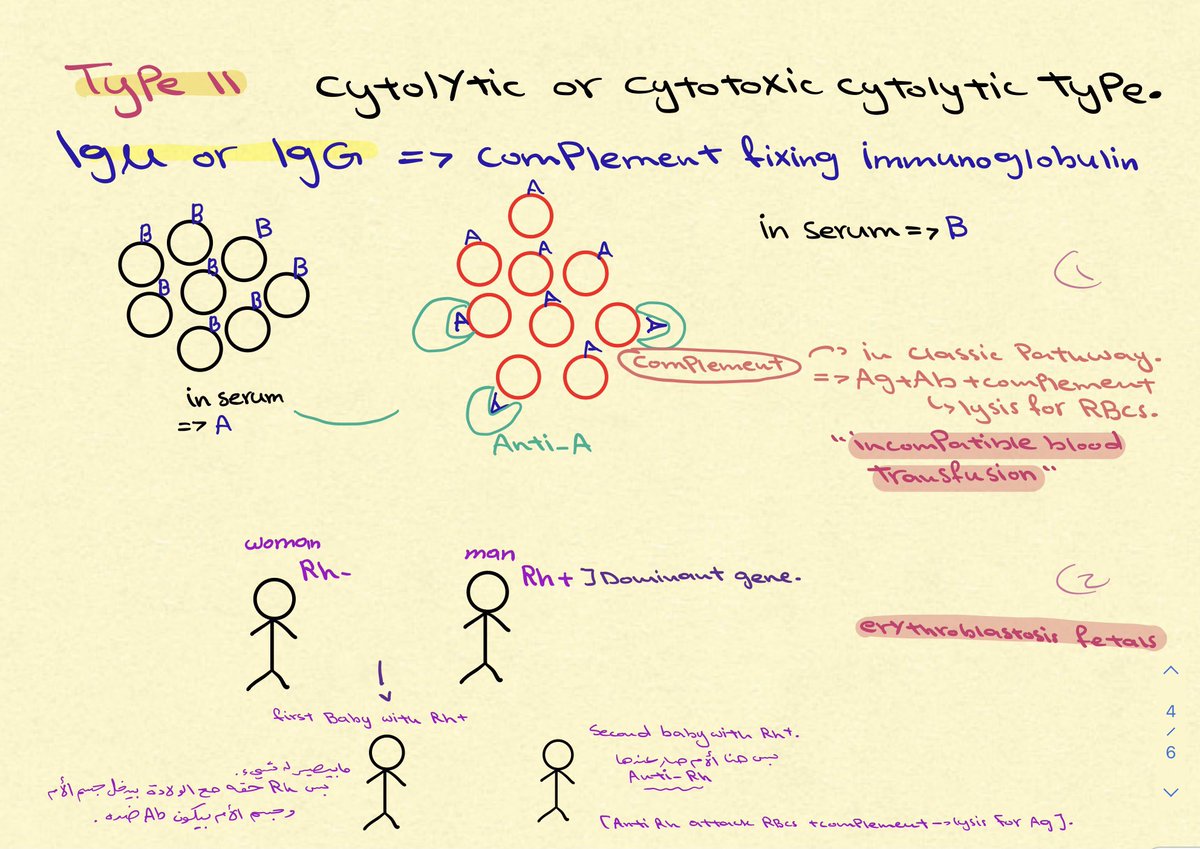 Type II Cytolytic or cytotoxic cytolytic type.
IgM or IgG => complement fixing immunoglobulin
B B B B B B B B
in serum
=> A
A A A A A A A A A A
Anti-A
in serum => B
1
complement
in classic pathway.
=> Ag+Ab+complement
↳ lysis for RBcs.
"incompatible blood
transfusion"
2
woman
Rh-
man
Rh+ ] Dominant gene.
erythroblastosis fetals
first Baby with Rh+
مابيصير له شيء.
بس Rh حقه مع الولادة بيدخل جسم الأم
وجسم الأم بيكون Ab ضده.
Second baby with Rh+.
بس هنا الأم صار عندها
Anti-Rh
[Anti Rh attack RBcs +complement → lysis for Ag].
4
/
6